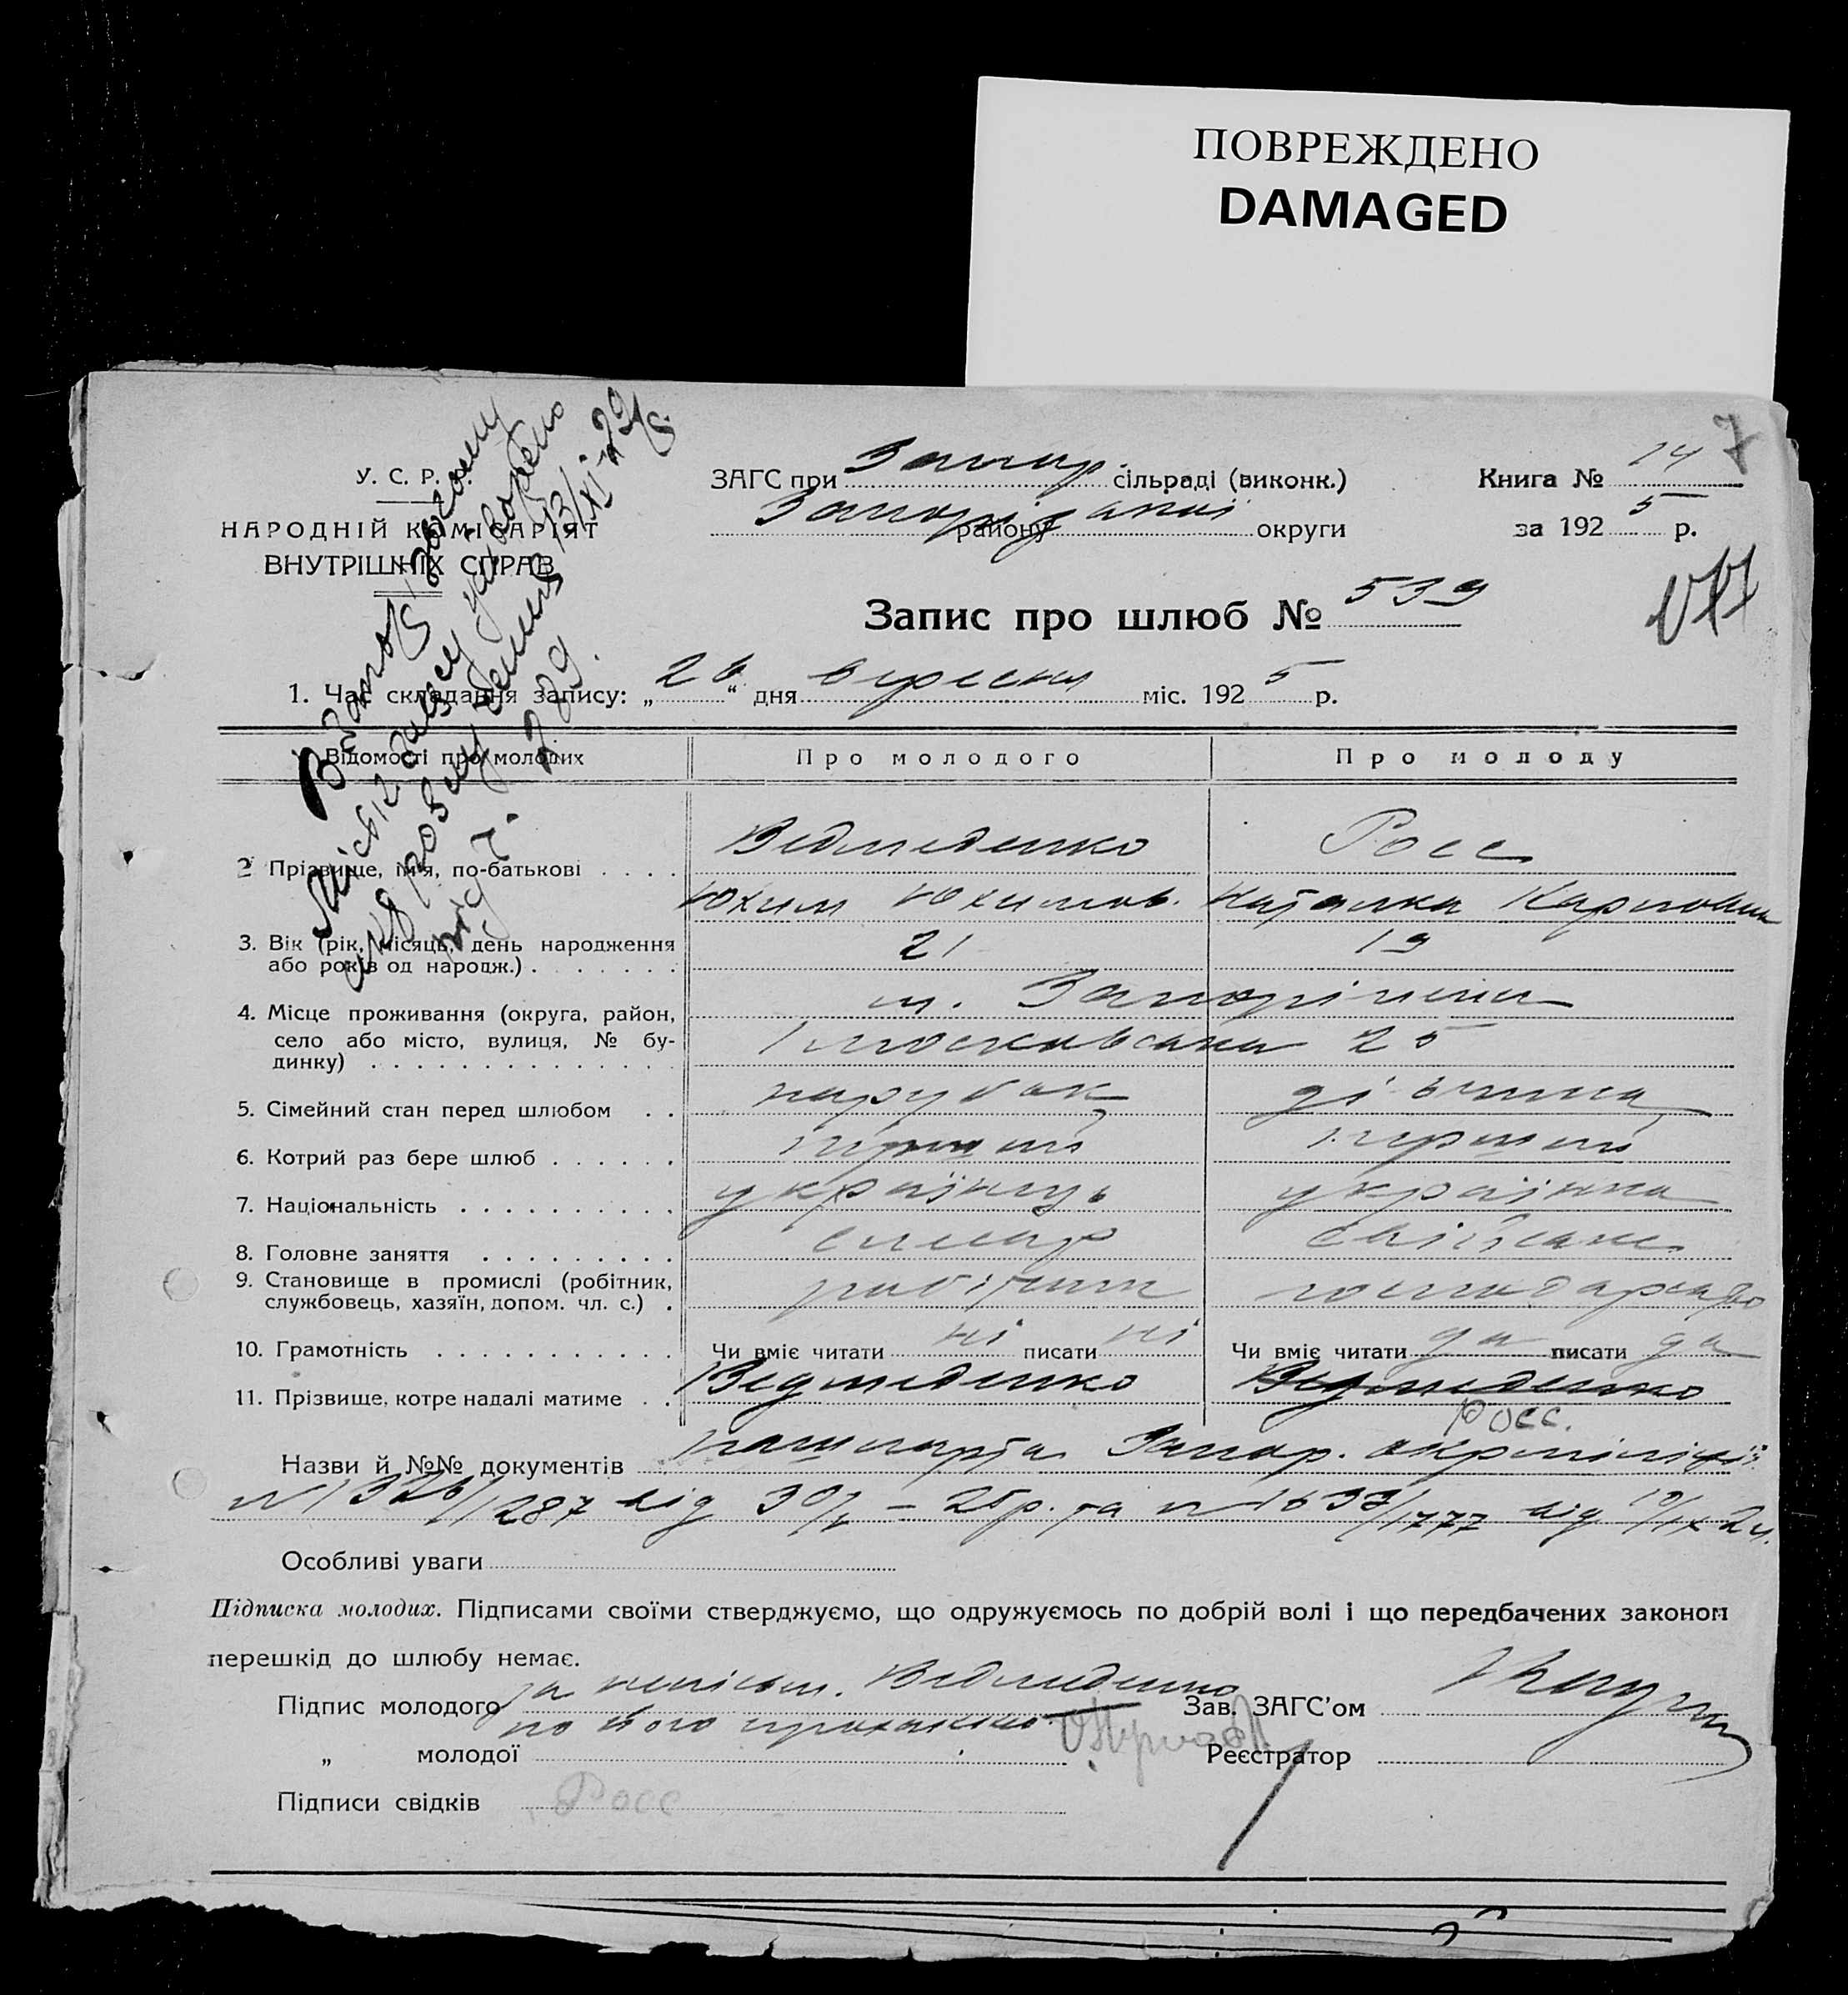 ПОВРЕЖДЕНО
DAMAGED
7
У. С. Р. Р.
НАРОДНІЙ КОМІСАРІЯТ
ВНУТРІШНІХ СПРАВ
ЗАГС при Запор. сільраді (виконк.)
Запорізької району округи
Книга № 14
за 1925 р.
Запис про шлюб № 539
1. Час складання запису: „26“ дня вересня міс. 1925 р.
Відомості про молодих
Про молодого
Про молоду
2 Прізвище, ім'я, по-батькові . . . .
Ведмеденко
Росс
Юхим Юхимов.
Наталка Карповна
3. Вік (рік, місяць, день народження або років од народж.) . . . . . . .
21
19
4. Місце проживання (округа, район, село або місто, вулиця, № будинку) . . . . . . . . . . . . . .
м. Запоріжжя
1 московська 25
5. Сімейний стан перед шлюбом . .
парубок
дівчина
6. Котрий раз бере шлюб . . . . . .
перший
перший
7. Національність . . . . . . . . . .
українець
українка
8. Головне заняття . . . . . . . . .
слюсар
9. Становище в промислі (робітник, службовець, хазяїн, допом. чл. с.) .
робітник
господарство
10. Грамотність . . . . . . . . . . .
Чи вміє читати ні писати ні
Чи вміє читати да писати да
11. Прізвище, котре надалі матиме . .
Ведмеденко
Ведмеденко
Росс.
Назви й №№ документів пашпорта Запор. окрміліції
від 30/ - 25р. та від
Особливі уваги
Підписка молодих. Підписами своїми стверджуємо, що одружуємось по добрій волі і що передбачених законом
перешкід до шлюбу немає.
Підпис молодого за неписьм. Ведмеденко
по його проханню
Зав. ЗАГС'ом
„ молодої
Реєстратор
Підписи свідків Росс